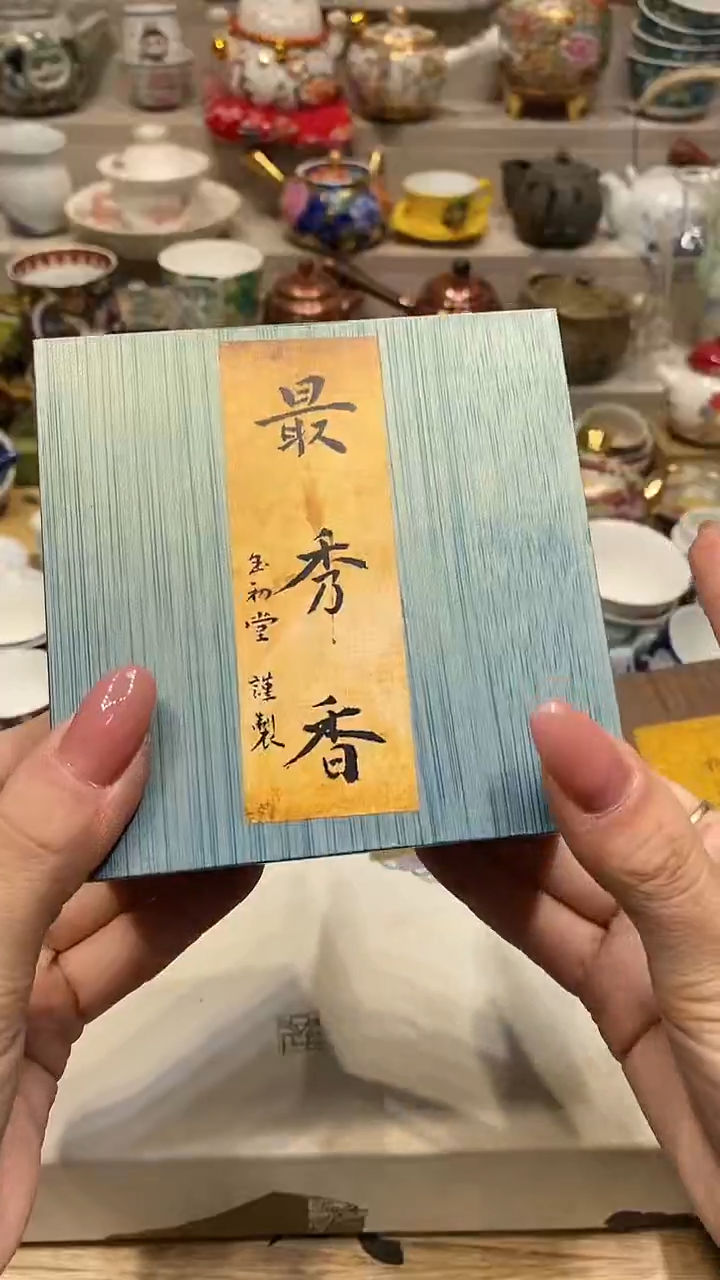 最秀香
玉初堂 謹製